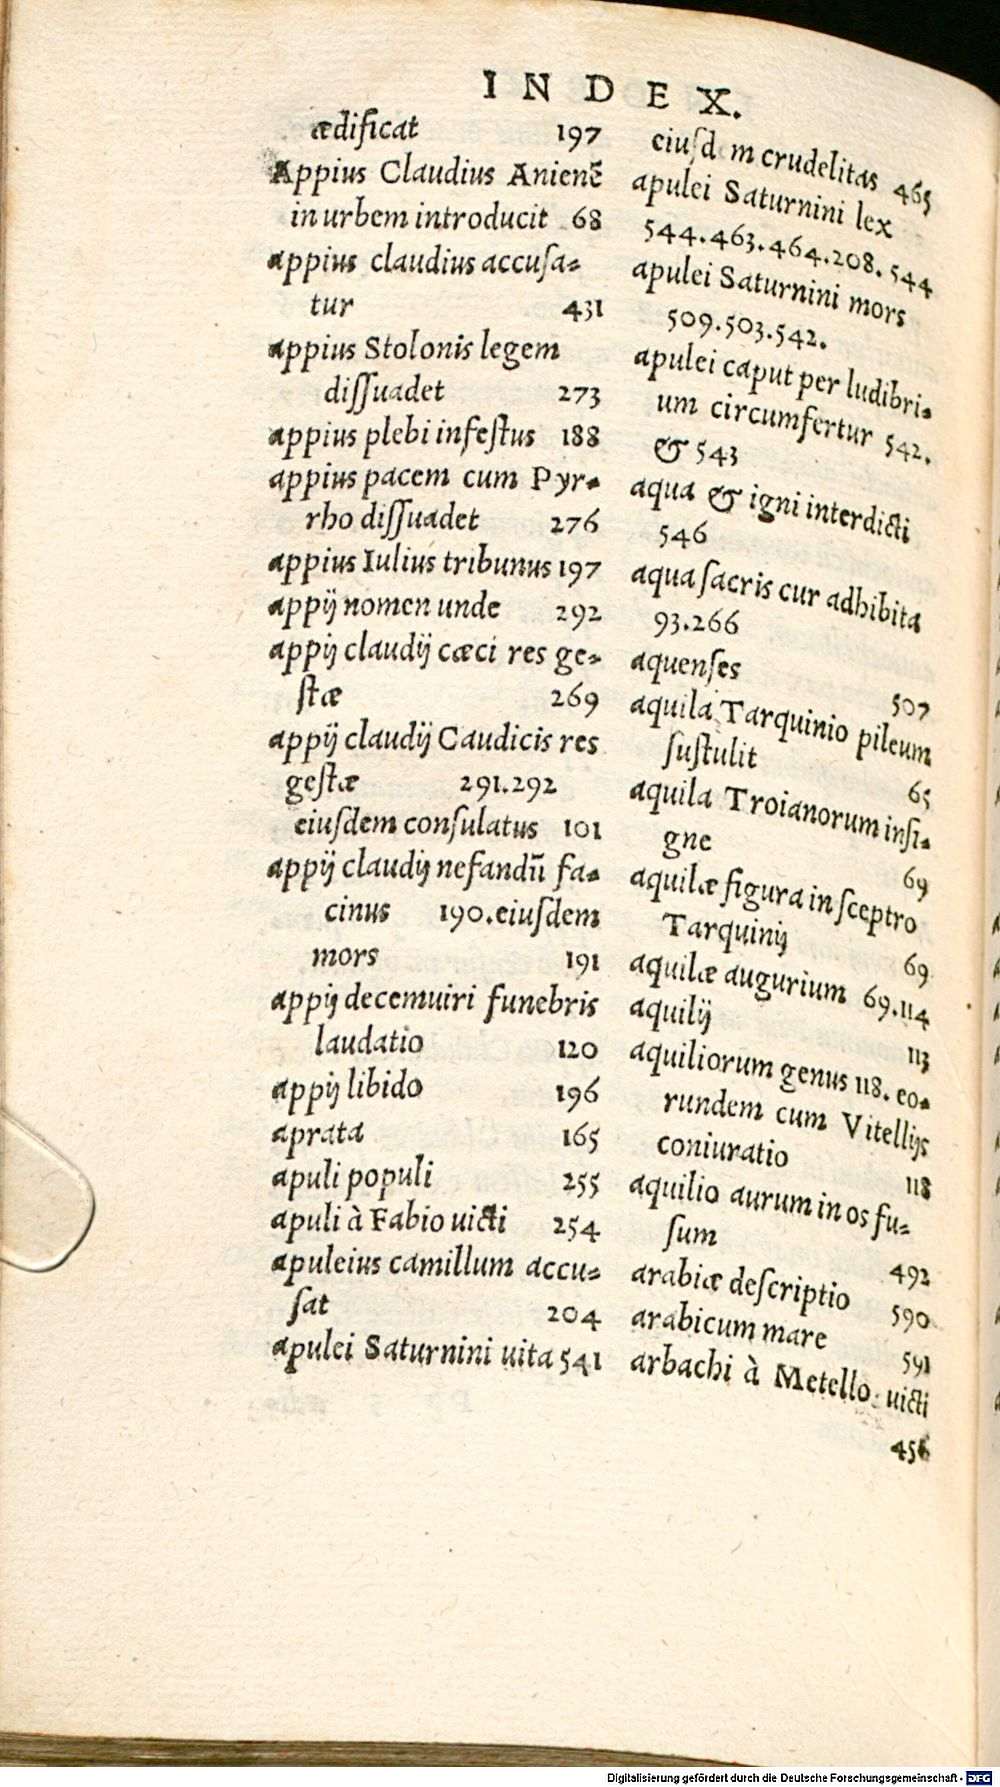 INDEX.
ædificat 197
Appius Claudius Anienẽ
in urbem introducit 68
appius claudius accusa-
tur 431
appius Stolonis legem
dissuadet 273
appius plebi infestus 188
appius pacem cum Pyr-
rho dissuadet 276
appius Iulius tribunus 197
appij nomen unde 292
appij claudij cæci res ge-
stæ 269
appij claudij Caudicis res
gestæ 291.292
eiusdem consulatus 101
appij claudij nefandũ fa-
cinus 190.eiusdem
mors 191
appij decemuiri funebris
laudatio 120
appij libido 196
aprata 165
apuli populi 255
apuli à Fabio uicti 254
apuleius camillum accu-
sat 204
apulei Saturnini uita 541
eiusd m crudelitas 465
apulei Saturnini lex
544.463.464.208.544
apulei Saturnini mors
509.503.542.
apulei caput per ludibri-
um circumfertur 542.
& 543
aqua & igni interdicti
546
aqua sacris cur adhibita
93.266
aquenses 507
aquila Tarquinio pileum
sustulit 65
aquila Troianorum insi-
gne 69
aquilæ figura in sceptro
Tarquinij 69
aquilæ augurium 69.114
aquilij 113
aquiliorum genus 118. eo-
rundem cum Vitellijs
coniuratio 118
aquilio aurum in os fu-
sum 492
arabiæ descriptio 590
arabicum mare 591
arbachi à Metello uicti
456
Digitalisierung gefördert durch die Deutsche Forschungsgemeinschaft - DFG